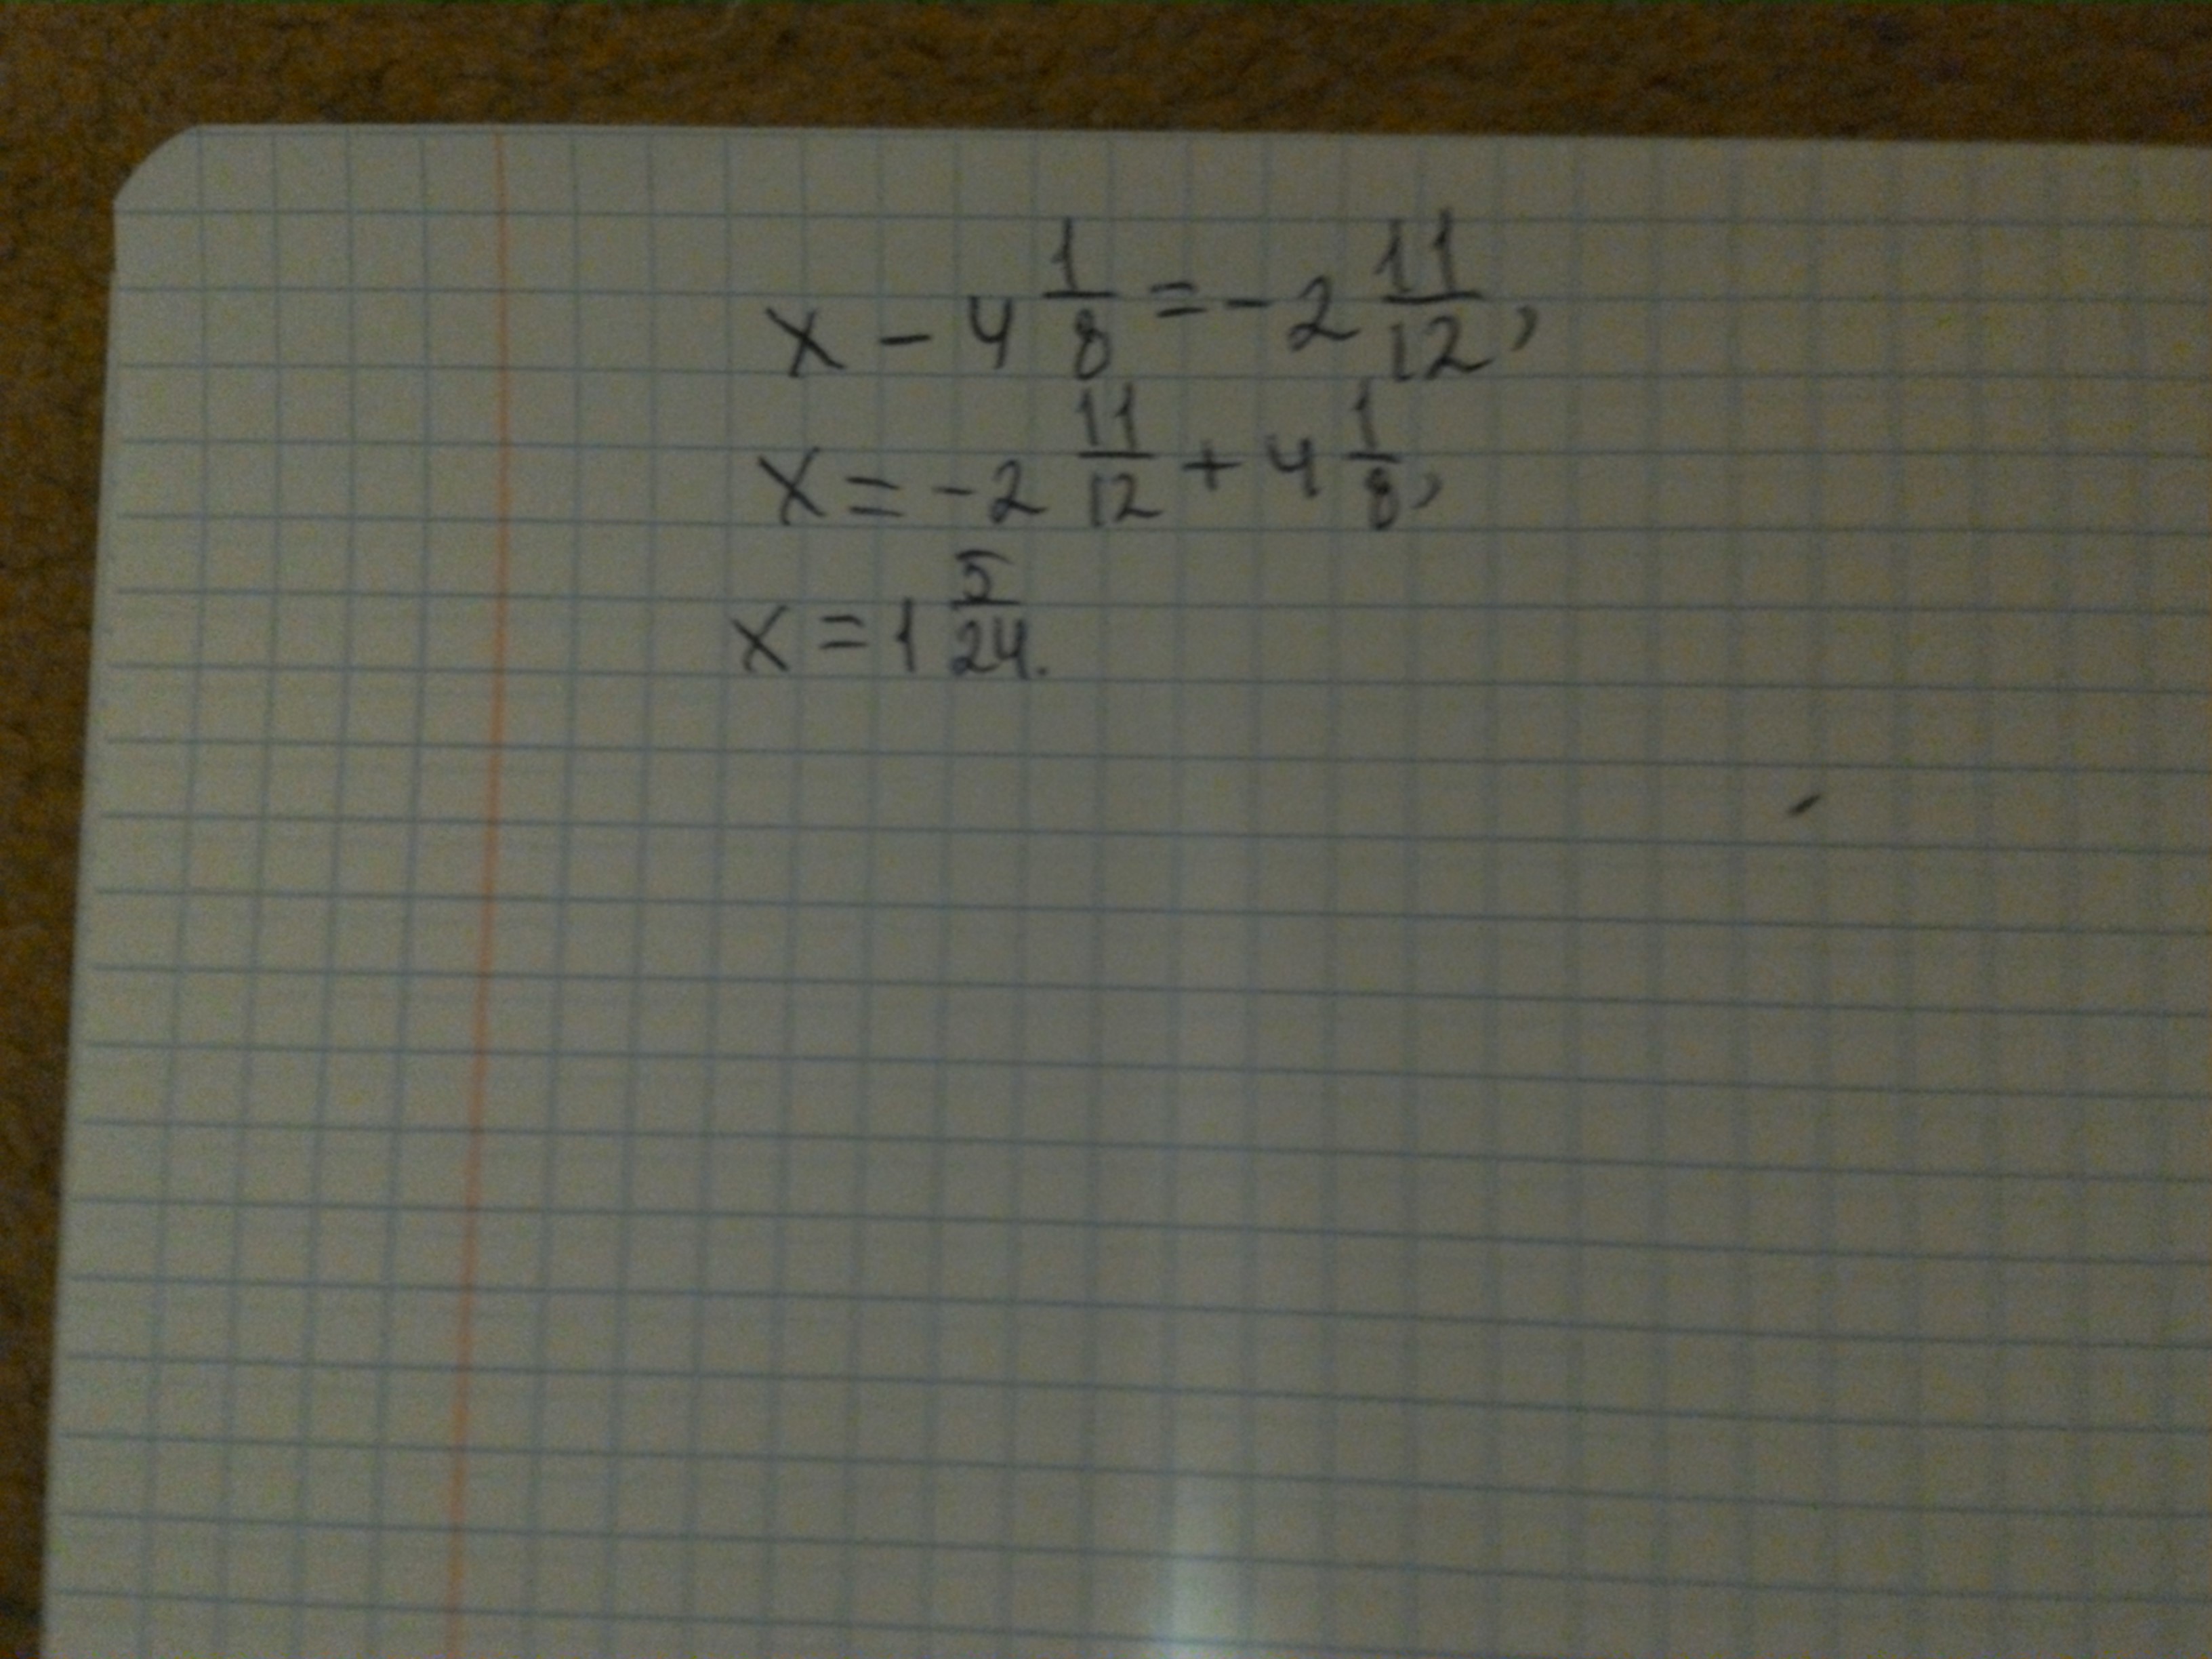 x - 4 1/8 = -2 11/12,
x = -2 11/12 + 4 1/8,
x = 1 5/24.